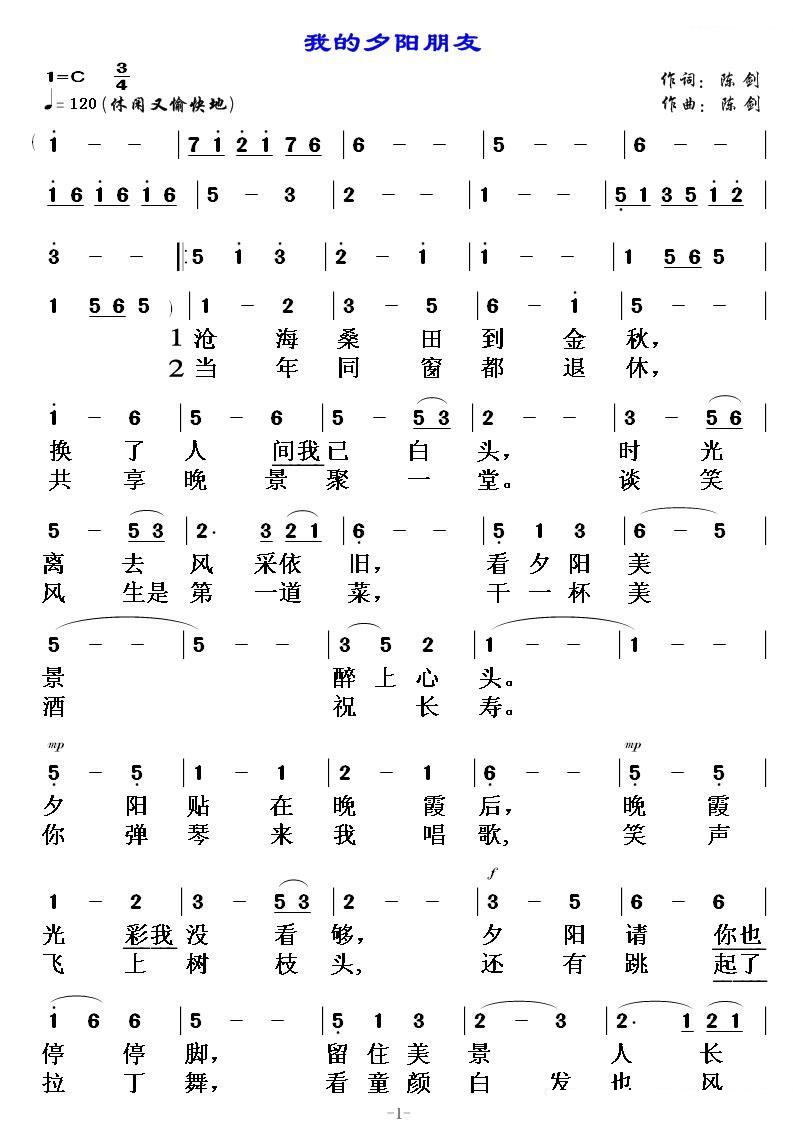 我的夕阳朋友
1=C 3/4
作词：陈剑
♩=120（休闲又愉快地）
作曲：陈剑
( 1 - - | 7 1 2 1 7 6 | 6 - - | 5 - - | 6 - - |
1 6 1 6 1 6 | 5 - 3 | 2 - - | 1 - - | 5 1 3 5 1 2 |
3 - - ‖: 5 1 3 | 2 - 1 | 1 - - | 1 5 6 5 |
1 5 6 5 ) | 1 - 2 | 3 - 5 | 6 - 1 | 5 - - |
1 沧 海 桑 田 到 金 秋，
2 当 年 同 窗 都 退 休，
1 - 6 | 5 - 6 | 5 - 5 3 | 2 - - | 3 - 5 6 |
换 了 人 间我已 白 头， 时 光
共 享 晚 景 聚 一 堂。 谈 笑
5 - 5 3 | 2· 3 2 1 | 6 - - | 5 1 3 | 6 - 5 |
离 去 风 采依 旧， 看 夕 阳 美
风 生是 第 一道 菜， 干 一 杯 美
5 - - | 5 - - | 3 5 2 | 1 - - | 1 - - |
景 醉 上 心 头。
酒 祝 长 寿。
mp mp
5 - 5 | 1 - 1 | 2 - 1 | 6 - - | 5 - 5 |
夕 阳 贴 在 晚 霞 后， 晚 霞
你 弹 琴 来 我 唱 歌, 笑 声
f
1 - 2 | 3 - 5 3 | 2 - - | 3 - 5 | 6 - 6 |
光 彩我 没 看 够， 夕 阳 请 你也
飞 上 树 枝 头, 还 有 跳 起了
1 6 6 | 5 - - | 5 1 3 | 2 - 3 | 2· 1 2 1 |
停 停 脚， 留 住 美 景 人 长
拉 丁 舞， 看 童 颜 白 发 也 风
-1-